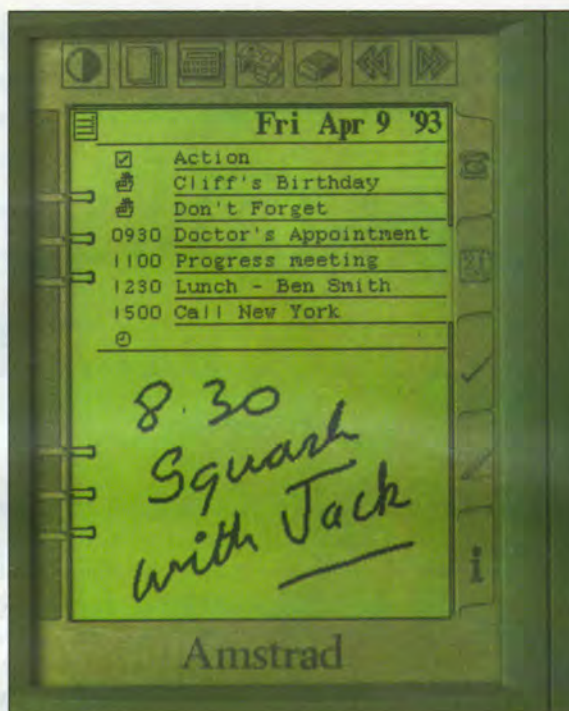 Fri Apr 9 '93
Action
Cliff's Birthday
Don't Forget
0930 Doctor's Appointment
1100 Progress meeting
1230 Lunch - Ben Smith
1500 Call New York
8.30
Squash
with Jack
i
Amstrad